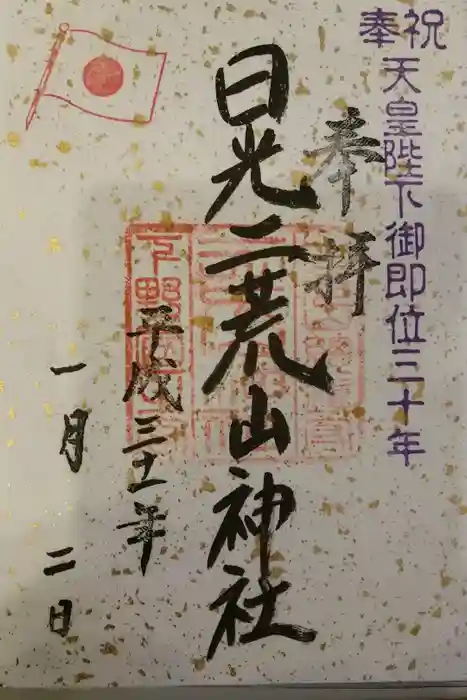 奉祝
天皇陛下御即位三十年
奉拝
日光二荒山神社
平成三十一年
一月二日